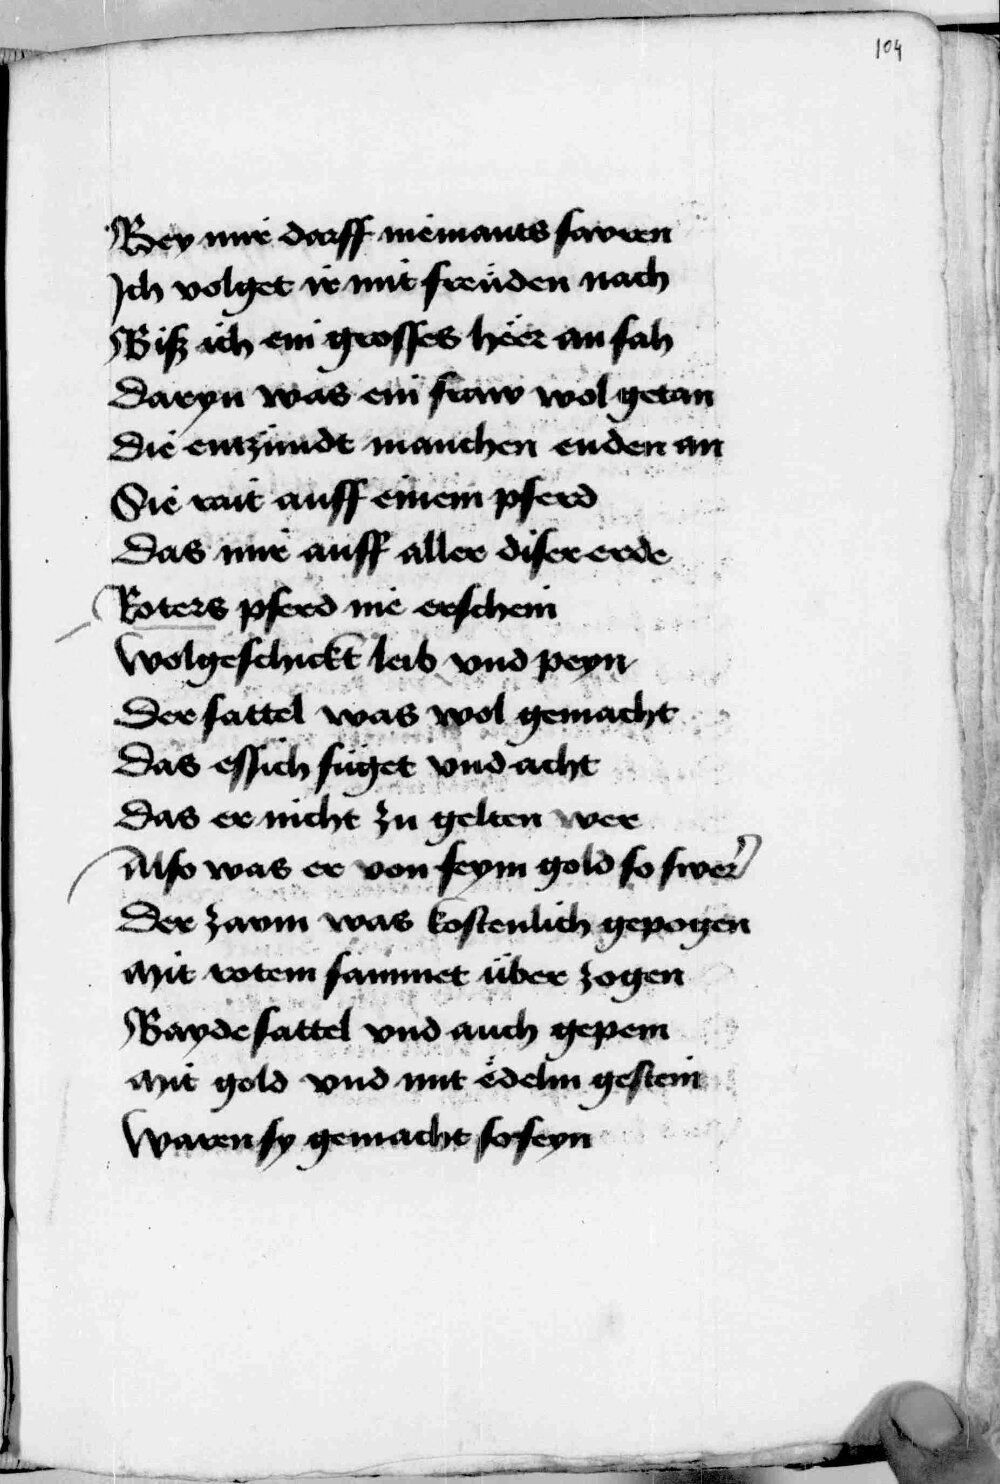 104
Bey mir dorff niemants sawren
Ich volget ir mit freüden nach
Biß ich ein grosses heer an sah
Daryn was ein fraw wol getan
Die entzündt manchen enden an
Sie rait auff einem pferd
Das mir auff aller diser erde
Roters pferd nie erschein
Wolgeschickt leib vnd peyn
Der sattel was wol gemacht
Das essich füget vnd acht
Das er nicht zu gelten wer
Also was er von feym gold so swer
Der zawm was kostenlich gepogen
Mit rotem sammet über zogen
Bayde sattel vnd auch gepem
Mit gold vnd mit edelm gestein
Waren sy gemacht so feyn